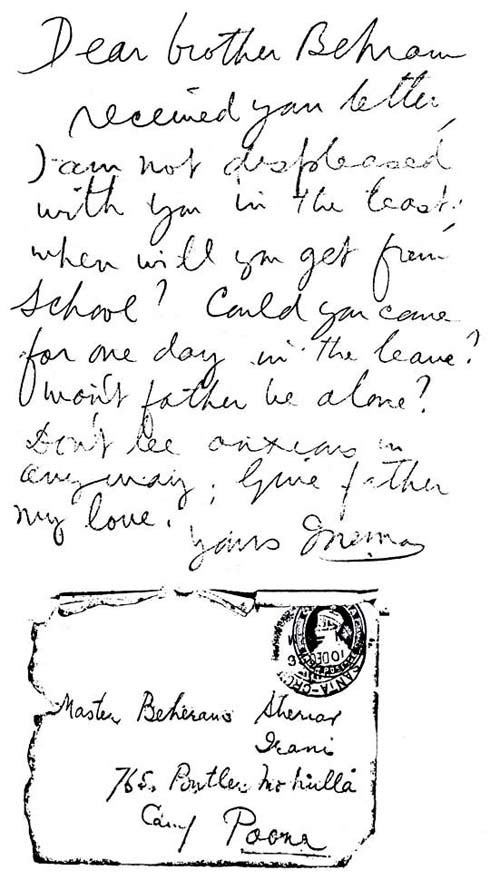 Dear brother Behram
received your letter,
I am not displeased
with you in the least.
when will you get from
School? Could you come
for one day in the leave?
won't father be alone?
Don't be anxious in
anyway; Give father
my love.
yours
SANTA-CRU
10 DEC
Master Beheram Sheriar
Irani
765, Butler Mohulla
Camp Poona